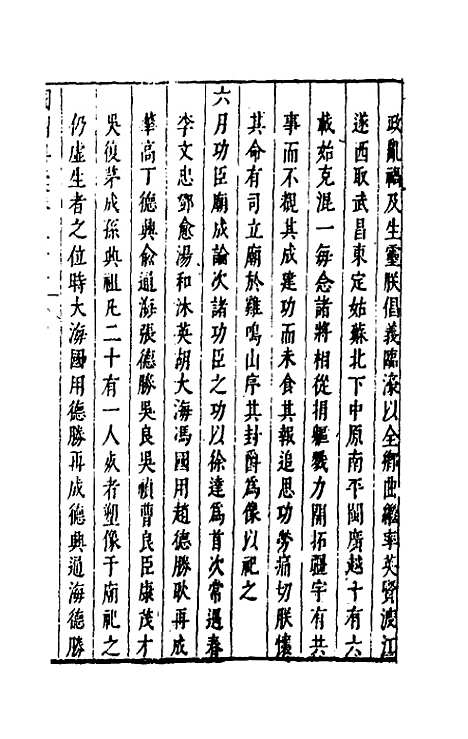 政亂禍及生靈朕倡義臨濠以全鄉曲繼率英賢渡江
遂西取武昌東定姑蘇北下中原南平閩廣越十有六
載始克混一每念諸將相從捐軀戮力開拓疆宇有共
事而不覩其成建功而未食其報追思功勞痛切朕懷
其命有司立廟於雞鳴山序其封爵爲像以祀之
六月功臣廟成論次諸功臣之功以徐達爲首次常遇春
李文忠鄧愈湯和沐英胡大海馮國用趙德勝耿再成
華高丁德興俞通海張德勝吳良吳禎曹良臣康茂才
吳復茅成孫興祖凡二十有一人死者塑像于廟祀之
仍虛生者之位時大海國用德勝再成德興通海德勝